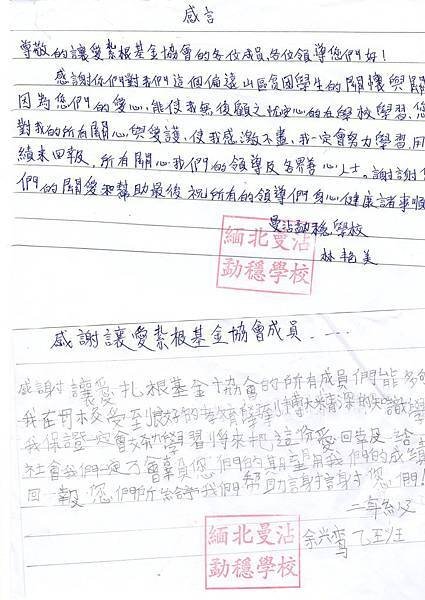 感言
尊敬的讓愛紮根基金協會的各位成員,各位領導您們好!
感謝你們對我們這個偏遠山區貧困學生的關懷與關
因為您們的愛心,能使我無後顧之憂安心的在學校學習,您
對我的所有關心與愛護,使我感激不盡,我一定會努力學習,用
績來回報,所有關心我們的領導及各界善心人士。謝謝
們的關愛和幫助最後祝所有的領導們身心健康諸事順
曼沾勐穩學校
林艳美
緬北曼沾
勐穩學校
感謝讓愛紮根基金協會成員......
感謝讓愛扎根基金協會的所有成員們能多
我在學校受到良好的教育學到博大精深的知識學
我保證一定會努力學習將來把這份愛回報給
社會我們一定不會辜負您們的期望用我們的成績
回報您們所給我們幫助謝謝您們!
二年級
余兴鸾
緬北曼沾
勐穩學校